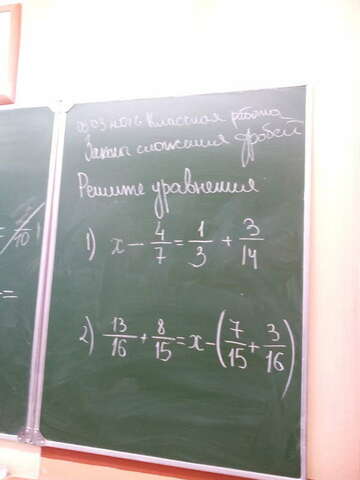 Классная работа
Законы сложения дробей
Решите уравнения
1) x - 4/7 = 1/3 + 3/14
2) 13/16 + 8/15 = x - (7/15 + 3/16)
=